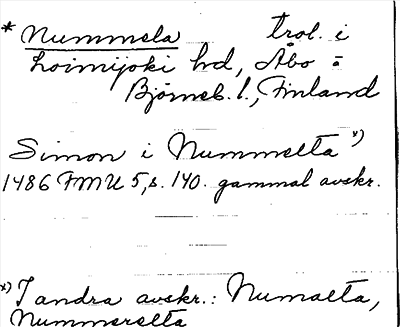 * Nummela trol. i
Loimijoki hd, Åbo o
Björneb. l., Finland
Simon i Nummelta x)
1486 FMU 5, s. 140. gammal avskr.
x) I andra avskr.: Numalta,
Nummerelta